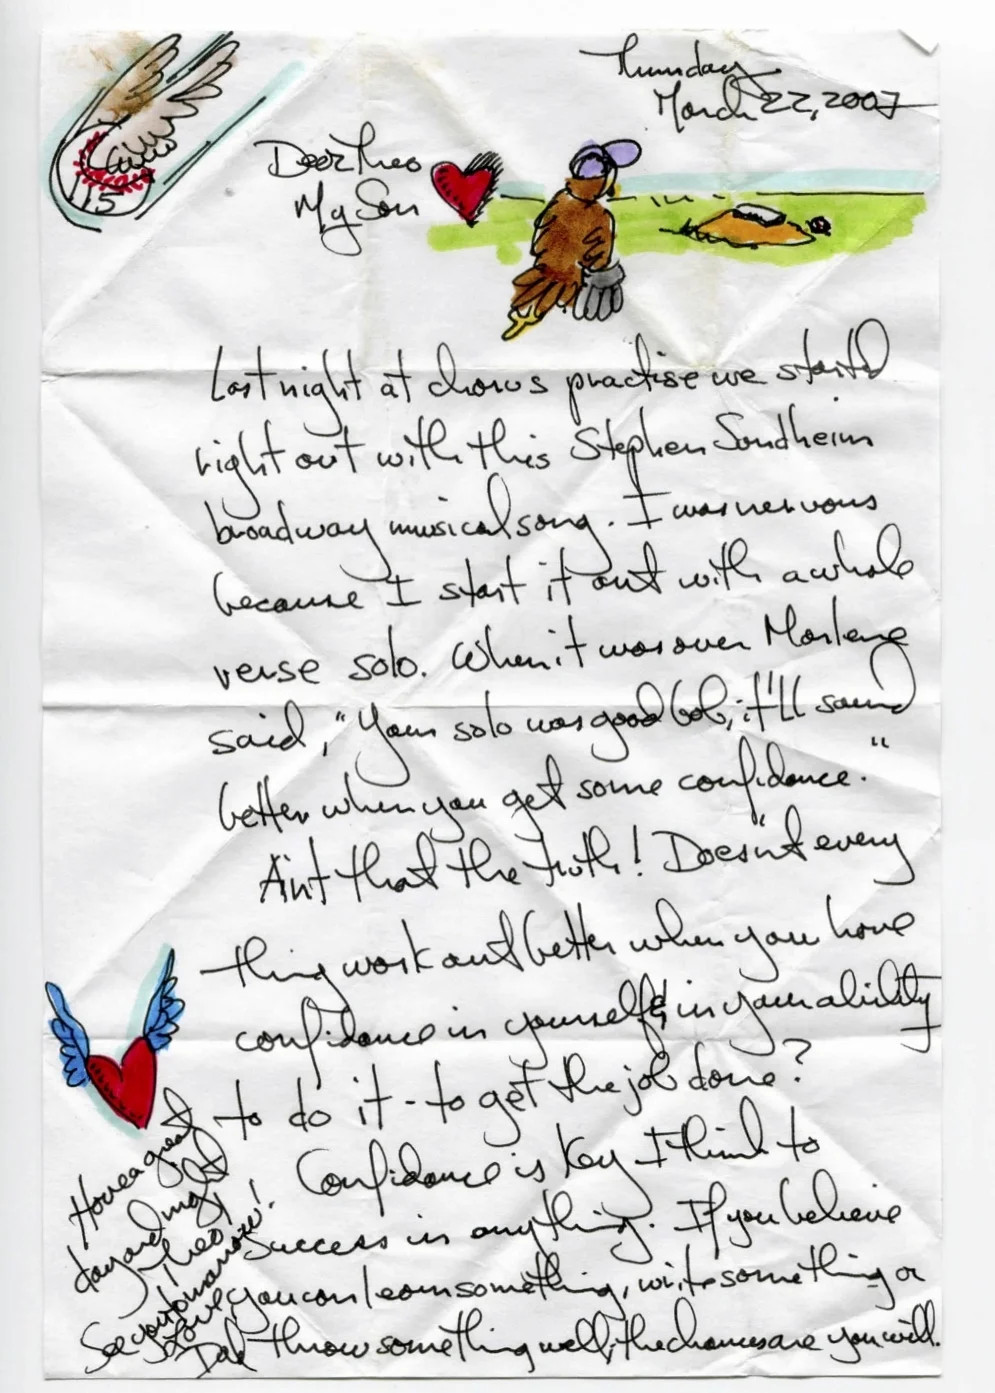 Thursday
March 22, 2007
15
Dear Theo
My Son
Last night at chorus practise we started
right out with this Stephen Sondheim
broadway musical song. I was nervous
because I start it out with a whole
verse solo. When it was over Marlene
said, "Your solo was good bob, it'll sound
better when you get some confidance."
Ain't that the truth! Doesn't every
thing work out better when you have
confidance in yourself & in your ability
to do it - to get the job done?
Confidance is key I think to
success in anything. If you believe
you can learn something, write something or
throw something well, the chances are you will.
Have a great
day and night
Theo,
See you tomorrow!
Love
Dad